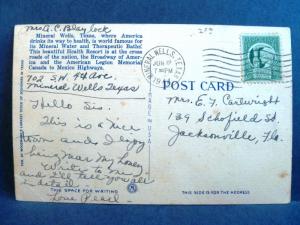 Mrs A. C. Blaylock
Mineral Wells, Texas, where America
drinks its way to health, is world famous for
its Mineral Water and Therapeutic Baths.
This beautiful resort is at the cross
roads of the nation, the Broadway of Amer-
ica and the American Legion Memorial
Canada to Mexico Highways.
702 S.W. 4th Ave.
Mineral Wells Texas
Hello Sis.
This is a nice
town and I
her
Write to me
and I'll tell you all
in detail.
Love Pearl
THIS SPACE FOR WRITING
MADE IN U.S.A.
MINERAL WELLS, TEXAS
JUN
PM
POST CARD
Mrs. E. F. Cartwright
139 Schofield St.
Jacksonville, Fla.
THIS SIDE IS FOR THE ADDRESS